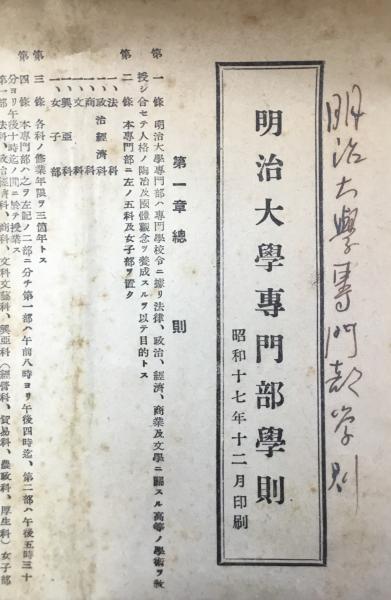 明治大學專門部学则
明治大學專門部學則
昭和十七年十二月印刷
第一章 總則
第一條 明治大學專門部ハ專門學校令ニ據リ法律、政治、經濟、商業及文學ニ關スル高等ノ學術ヲ敎
授シ合セテ人格ノ陶冶及國體觀念ヲ養成スルヲ以テ目的トス
第二條 本專門部ニ左ノ五科及女子部ヲ置ク
一、法科
一、政治經濟科
一、商科
一、文科
一、興亞科
一、女子部
第三條 各科ノ修業年限ヲ三箇年トス
第四條 本專門部ハ之ヲ左記ノ二部ニ分チ第一部ハ午前八時ヨリ午後四時迄、第二部ハ午後五時三十
分ヨリ午後十時迄ノ間ニ於テ授業ス
第一部 法科、政治經濟科、商科、文科文藝科、興亞科(經營科、貿易科、農政科、厚生科)女子部